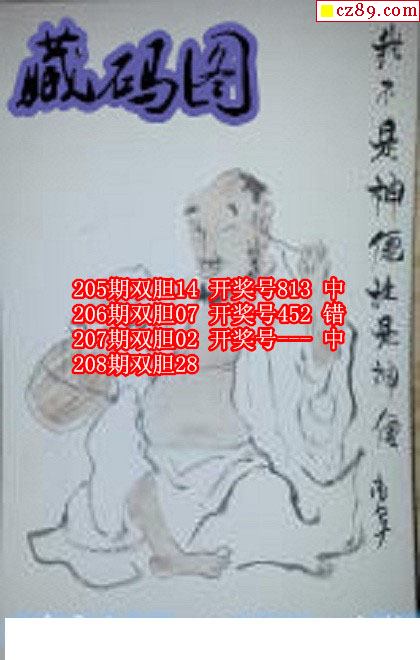 cz89.com
藏码图
我不是神仙谁是神仙
205期双胆14 开奖号813 中
206期双胆07 开奖号452 错
207期双胆02 开奖号--- 中
208期双胆28